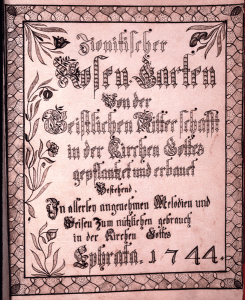 Zionitischer
Rosen-Garten
Von der
Geistlichen Ritterschafft
in der Kirchen Gottes
gepflantzet und erbauet
Bestehend.
In allerley angenehmen Melodien und
Weisen Zum nützlichen gebrauch
in der Kirchen Gottes
Ephrata. 1744.